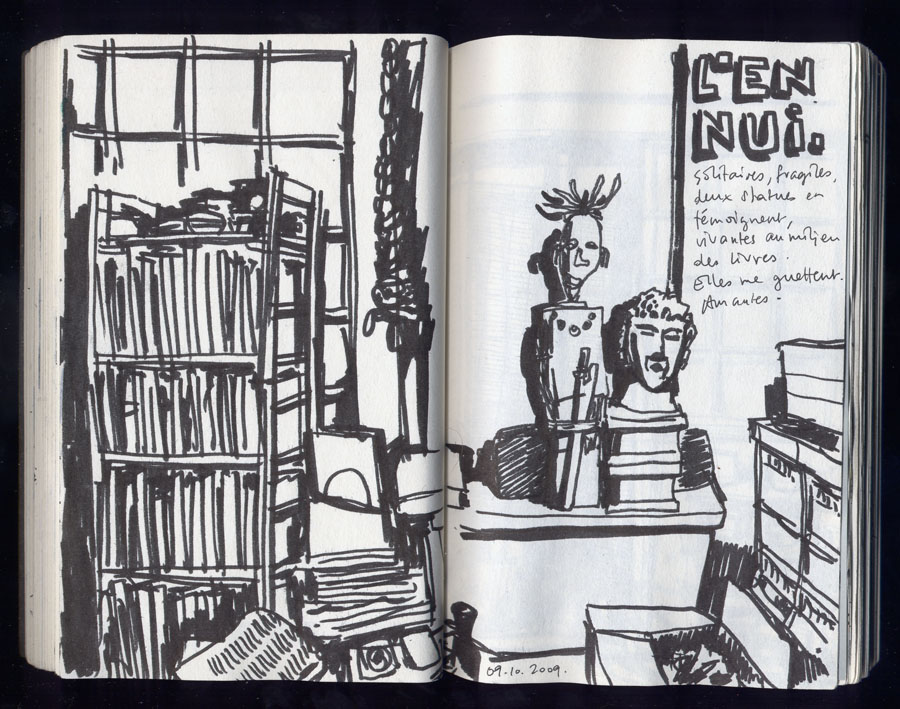 L'EN
NUI.
solitaires, fragiles,
deux statues en
témoignent,
vivantes au milieu
des livres.
Elles me guettent.
Amantes.
09.10.2009.